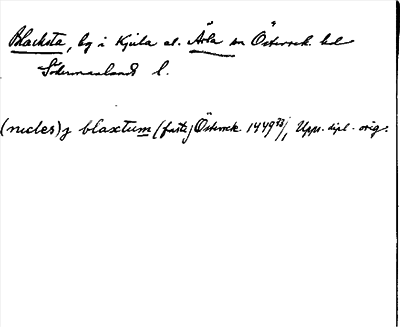 Blacksta, by i Kjula el. Ärla sn Österrek. hd
Södermanlands l.
(nicles) j blaxtum (faste) Österrek. 1449 23/1, Upps. dipl. orig.